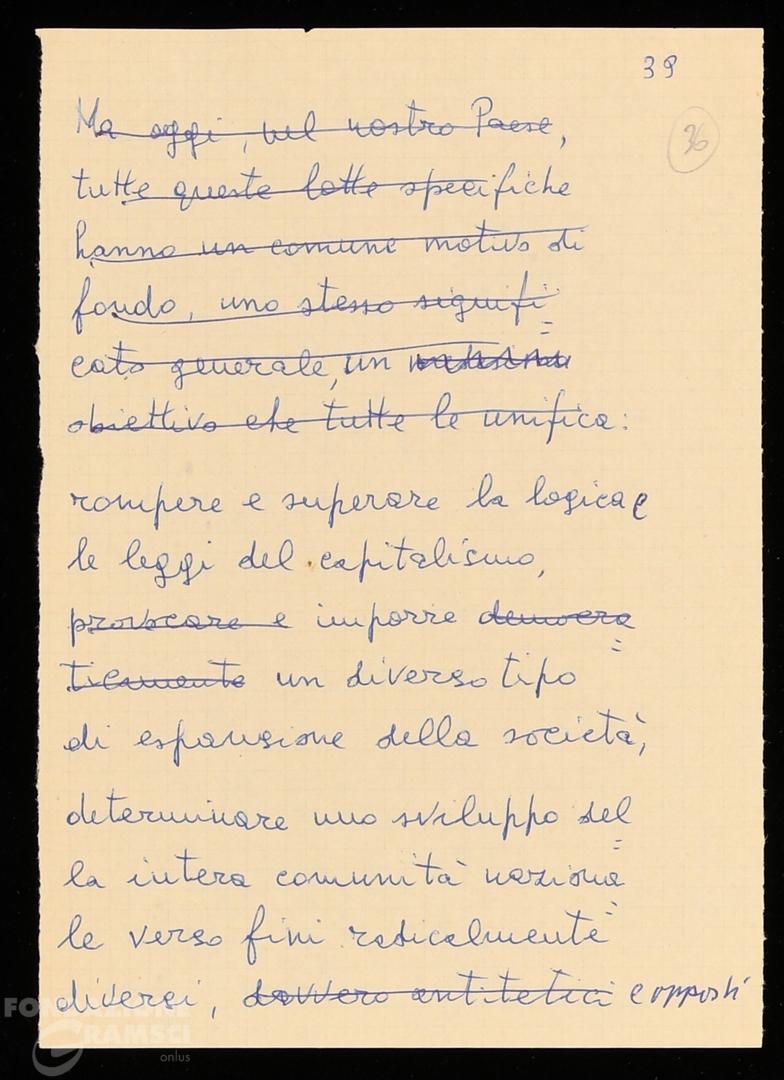 39
36
Ma oggi, nel nostro Paese,
tutte queste lotte specifiche
hanno un comune motivo di
fondo, uno stesso signifi=
cato generale, un
obiettivo che tutte le unifica:
rompere e superare la logica e
le leggi del capitalismo,
provocare e imporre democra=
ticamente un diverso tipo
di espansione della società,
determinare uno sviluppo del=
la intera comunità naziona=
le verso fini radicalmente
diversi, davvero antitetici e opposti
FONDAZIONE
GRAMSCI
onlus